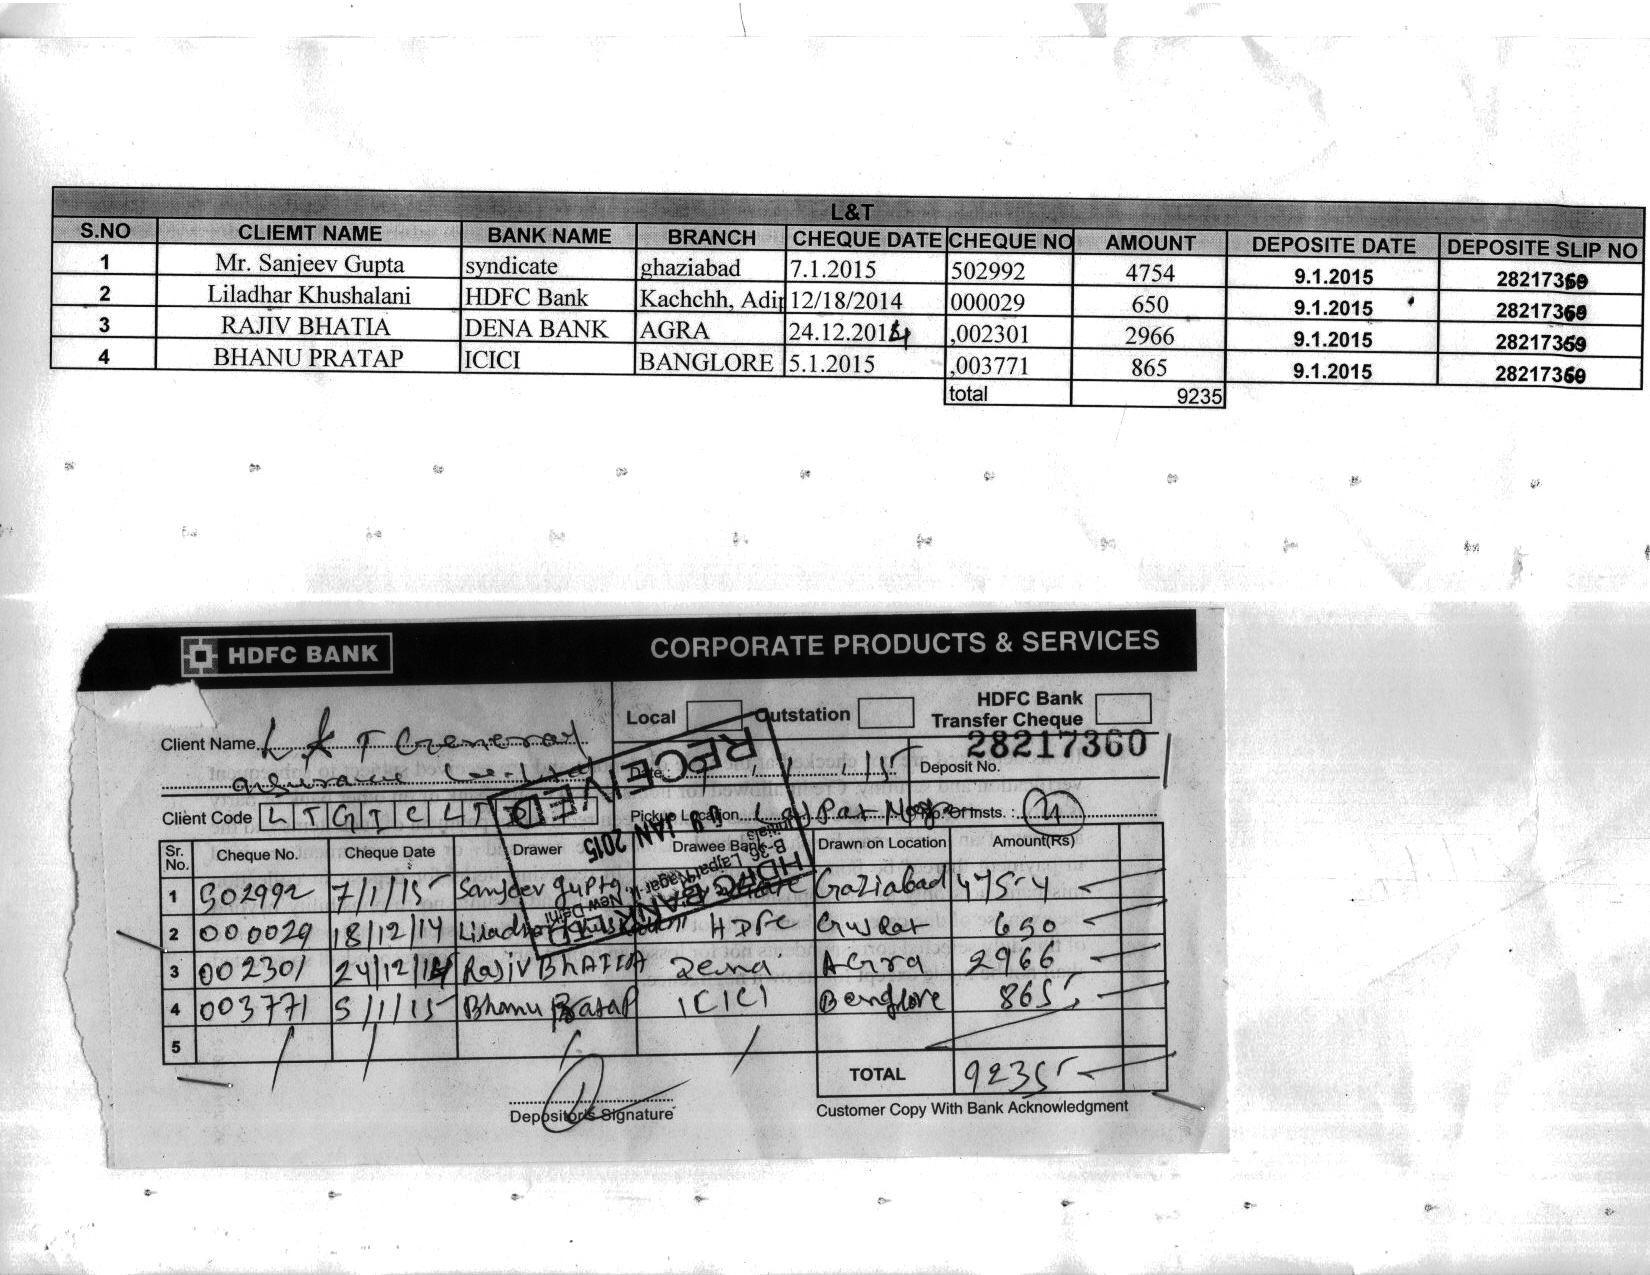 L&T
S.NO CLIEMT NAME BANK NAME BRANCH CHEQUE DATE CHEQUE NO AMOUNT DEPOSITE DATE DEPOSITE SLIP NO
1 Mr. Sanjeev Gupta syndicate ghaziabad 7.1.2015 502992 4754 9.1.2015 28217360
2 Liladhar Khushalani HDFC Bank Kachchh, Adip 12/18/2014 000029 650 9.1.2015 28217360
3 RAJIV BHATIA DENA BANK AGRA 24.12.2014 ,002301 2966 9.1.2015 28217359
4 BHANU PRATAP ICICI BANGLORE 5.1.2015 ,003771 865 9.1.2015 28217360
total 9235
HDFC BANK CORPORATE PRODUCTS & SERVICES
Local Outstation HDFC Bank Transfer Cheque
Client Name L & T General
28217360
Date : / /15 Deposit No.
Client Code LTGICLT Pickup Location Lajpat Nagar No. Of Insts. : 4
RECEIVED
09 JAN 2015
Initials
B-36
Lajpat Nagar-II, New Delhi
HDFC BANK LTD
Sr. No. Cheque No. Cheque Date Drawer Drawee Bank Drawn on Location Amount(Rs)
1 502992 7/1/15 Sanjeev gupta Gaziabad 4754
2 000029 18/12/14 Liladhar HDFC Gujrat 650
3 002301 24/12/14 Rajiv BhATIA Dena AGra 2966
4 003771 5/1/15 Bhanu Pratap ICICI Benglore 865
5
TOTAL 9235
Depositor's Signature Customer Copy With Bank Acknowledgment